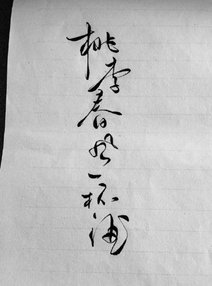 桃李春风一杯酒